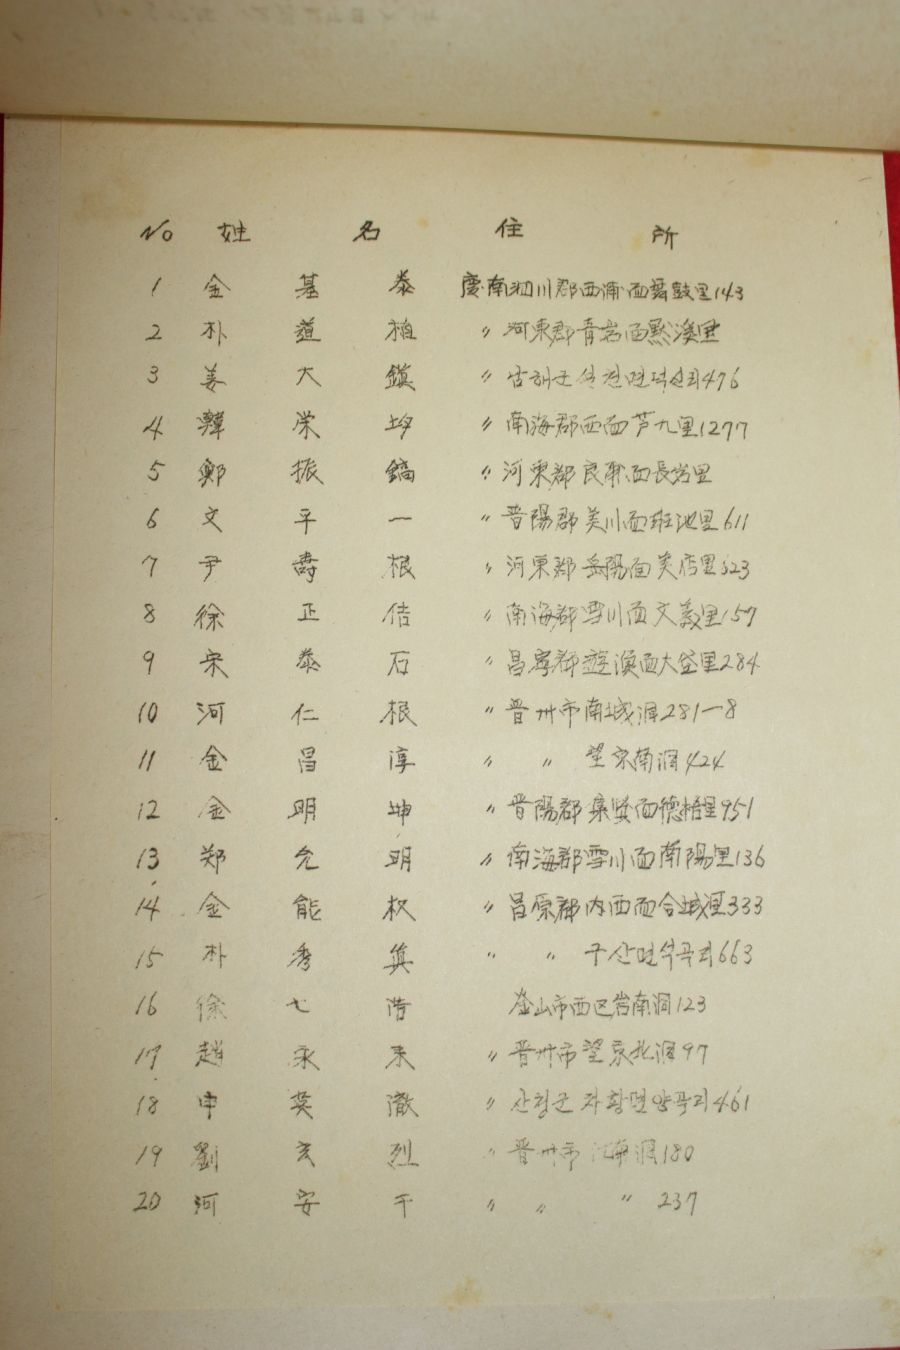 No 姓 名 住 所
1 金 基 泰 慶南泗川郡西浦面舞鼓里143
2 朴 道 柏 〃 河東郡靑岩面默溪里
3 姜 大 鎭 〃 남해군 면 476
4 韓 栄 均 〃 南海郡西面芦九里1277
5 鄭 振 鎬 〃 河東郡良甫面長岩里
6 文 平 一 〃 晋陽郡美川面班池里611
7 尹 壽 根 〃 河東郡岳陽面美店里523
8 徐 正 佶 〃 南海郡雪川面文義里157
9 宋 泰 石 〃 昌寧郡遊漁面大垈里284
10 河 仁 根 〃 晋州市南城洞281-8
11 金 昌 淳 〃 〃 望京南洞424
12 金 明 坤 〃 晋陽郡集賢面德梧里951
13 郑 允 明 〃 南海郡雪川面南陽里136
14 金 能 权 〃 昌原郡内西面合城里333
15 朴 秀 箕 〃 〃 구산면석곡리663
16 徐 七 釜山市西区岩南洞123
17 趙 永 来 〃 晋州市望京北洞97
18 申 英 澈 〃 산청군 차황면양곡리461
19 劉 玄 烈 〃 晋州市 洞180
20 河 安 千 〃 〃 〃 237